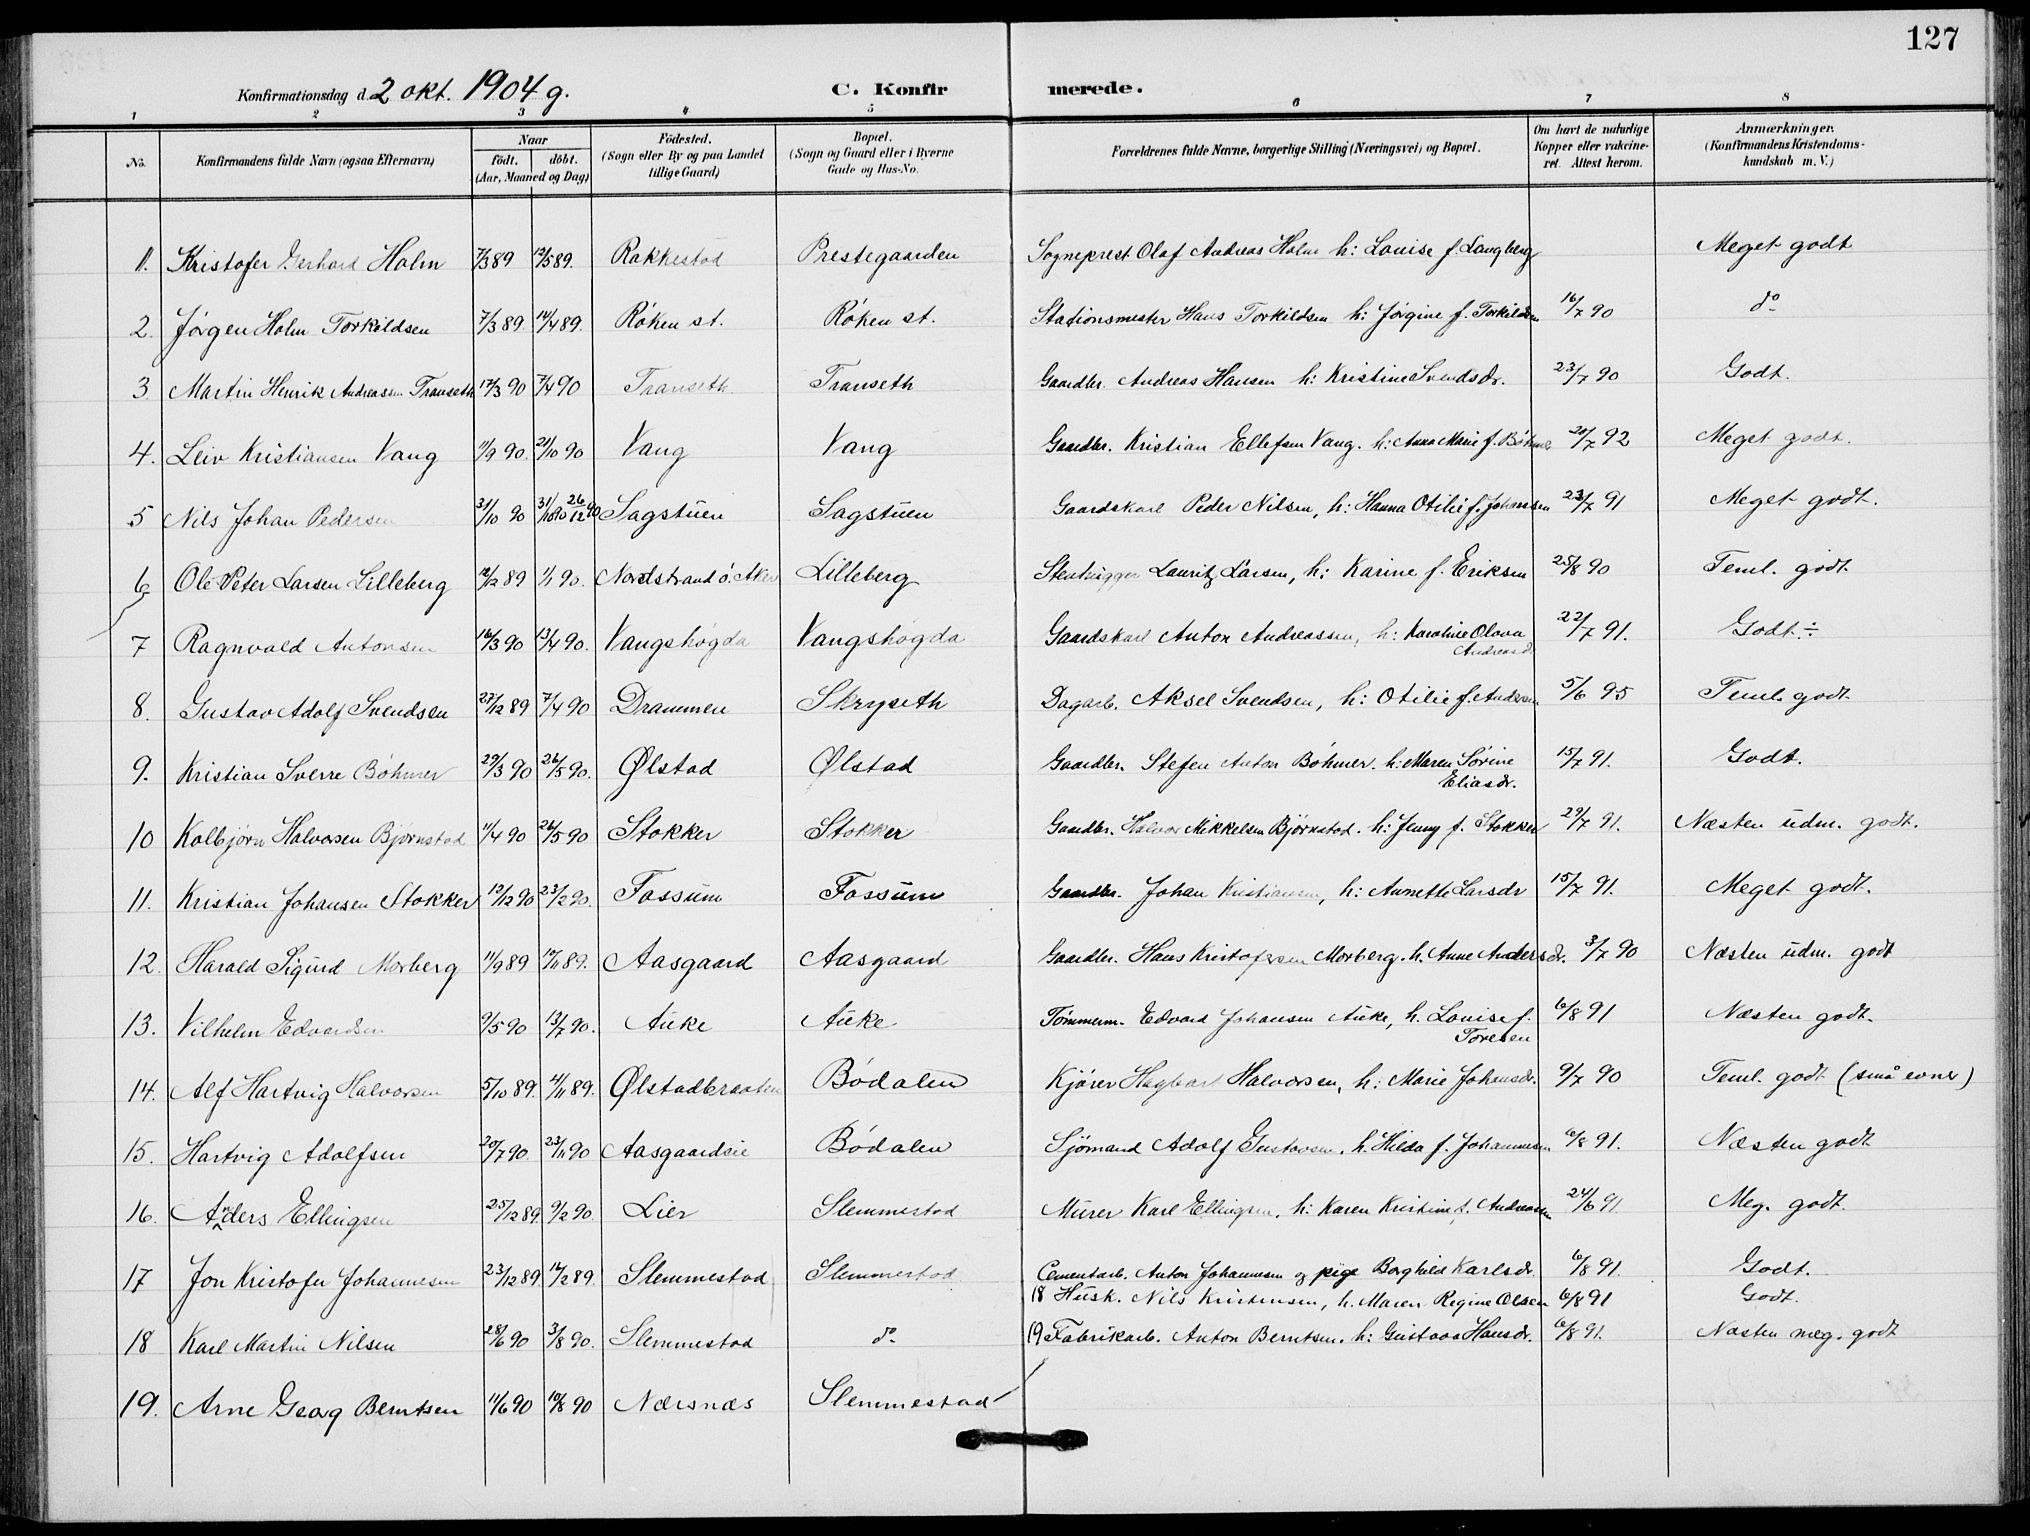 127
Konfirmationsdag d. 2 okt. 1904 g. C. Konfirmerede.
1 2 3 4 5 6 7 8
No. Konfirmandens fulde Navn (ogsaa Efternavn) Naar født. døbt. (Aar, Maaned og Dag) Fødested. (Sogn eller By og paa Landet tillige Gaard) Bopæl. (Sogn og Gaard eller i Byerne Gade og Hus-No. Forældrenes fulde Navne, borgerlige Stilling (Næringsvei) og Bopæl. Om havt de naturlige Kopper eller vakcineret. Attest herom. Anmærkninger. (Konfirmandens Kristendomskundskab m. V.)
1. Kristofer Gerhard Holm 7/3 89 12/5 89. Rakkestad Prestegaarden Sogneprest Olaf Andreas Holm h: Louise f. Langberg Meget godt
2. Jørgen Holm Torkildsen 7/3 89 14/4 89. Røken st. Røken st. Stationsmester Hans Torkildsen h: Jørgine f. Torkildsen 16/7 90 do
3 Martin Henrik Andreassen Transeth 17/3 90 7/4 90 Transeth Transeth Gaardbr. Andreas Hansen h: Kristine Svendsdr. 23/7 90 Godt.
4. Leiv Kristiansen Vang 11/9 90 21/10 90 Vang Vang Gaardbr. Kristian Ellefsen Vang. h: Anna Marie f. Bøhmer 20/7 92 Meget godt.
5 Nils Johan Pedersen 31/10 90 31/10 90 26/12 90 Sagstuen Sagstuen Gaardskarl Peder Nilsen, h: Hanna Otilie f. Johansen 23/7 91 Meget godt.
6 Ole Peter Larsen Lilleberg 12/12 89 1/1 90. Nordstrand ö. Aker Lilleberg Stenhugger Lauritz Larsen, h: Karine f. Eriksen 25/8 90 Teml. godt.
7 Ragnvald Antonsen 16/3 90 13/4 90. Vangshøgda Vangshøgda Gaardskarl Anton Andreassen, h: Karoline Olava Andreasdr 22/7 91. Godt ÷
8. Gustav Adolf Svendsen 27/12 89 7/4 90 Drammen Skryseth Dagarb. Aksel Svendsen, h: Otilie f. Andersen 5/6 95 Teml. godt
9. Kristian Sverre Bøhmer 29/3 90 26/5 90. Ølstad Ølstad Gaardbr. Stefen Anton Bøhmer. h: Maren Sørine Eliasdr. 15/7 91. Godt.
10 Kolbjørn Halvorsen Bjørnstad 11/4 90 26/5 90 Stokker Stokker Gaardbr. Halvor Mikkelsen Bjørnstad. h: Jenny f. Stokker 29/7 91. Næsten udm. godt.
11. Kristian Johansen Stokker 12/12 90 23/2 90. Fossum Fossum Gaardbr. Johan Kristiansen, h: Annette Larsdr 15/7 91. Meget godt.
12. Harald Sigurd Morberg 11/9 89 17/11 89. Aasgaard Aasgaard Gaardbr. Hans Kristofersen Morberg. h. Anne Andersdr. 3/7 90 Næsten udm. godt
13. Vilhelm Edvardsen 9/5 90 13/7 90. Auke Auke Tømmerm. Edvard Johansen Auke, h. Louise f. Toresen 6/8 91 Næsten godt.
14. Alf Hartvig Halvorsen 5/10 89. 4/11 89. Ølstadbraaten Bødalen Kjører Hagbart Halvorsen, h: Marie Johansdr. 9/7 90 Teml. godt (små evner)
15. Hartvig Adolfsen 20/7 90. 23/11 90 Aasgaardeie Bødalen Sjømand Adolf Gustavsen, h. Hilda f. Johannesen 6/8 91. Næsten godt
16. Anders Ellingsen 25/12 89 9/2 90. Lier Slemmestad Murer Karl Ellingsen, h: Karen Kristine f. Andreassen 24/6 91 Meg. godt.
17 Jon Kristofer Johannesen 23/12 89 16/2 89. Slemmestad Slemmestad Cementarb. Anton Johannesen og pige Borghild Karlsdr. 6/8 91. Godt.
18 Husk. Nils Kristensen, h. Maren Regine Olsen 6/8 91 Godt.
18 Karl Martin Nilsen 28/6 90 3/8 90. Slemmestad do 19 Fabrikarb. Anton Berntsen. h: Gustava Hansdr. 6/8 91. Næsten meg. godt
19. Arne Georg Berntsen 11/6 90 10/8 90 Nærsnæs Slemmestad